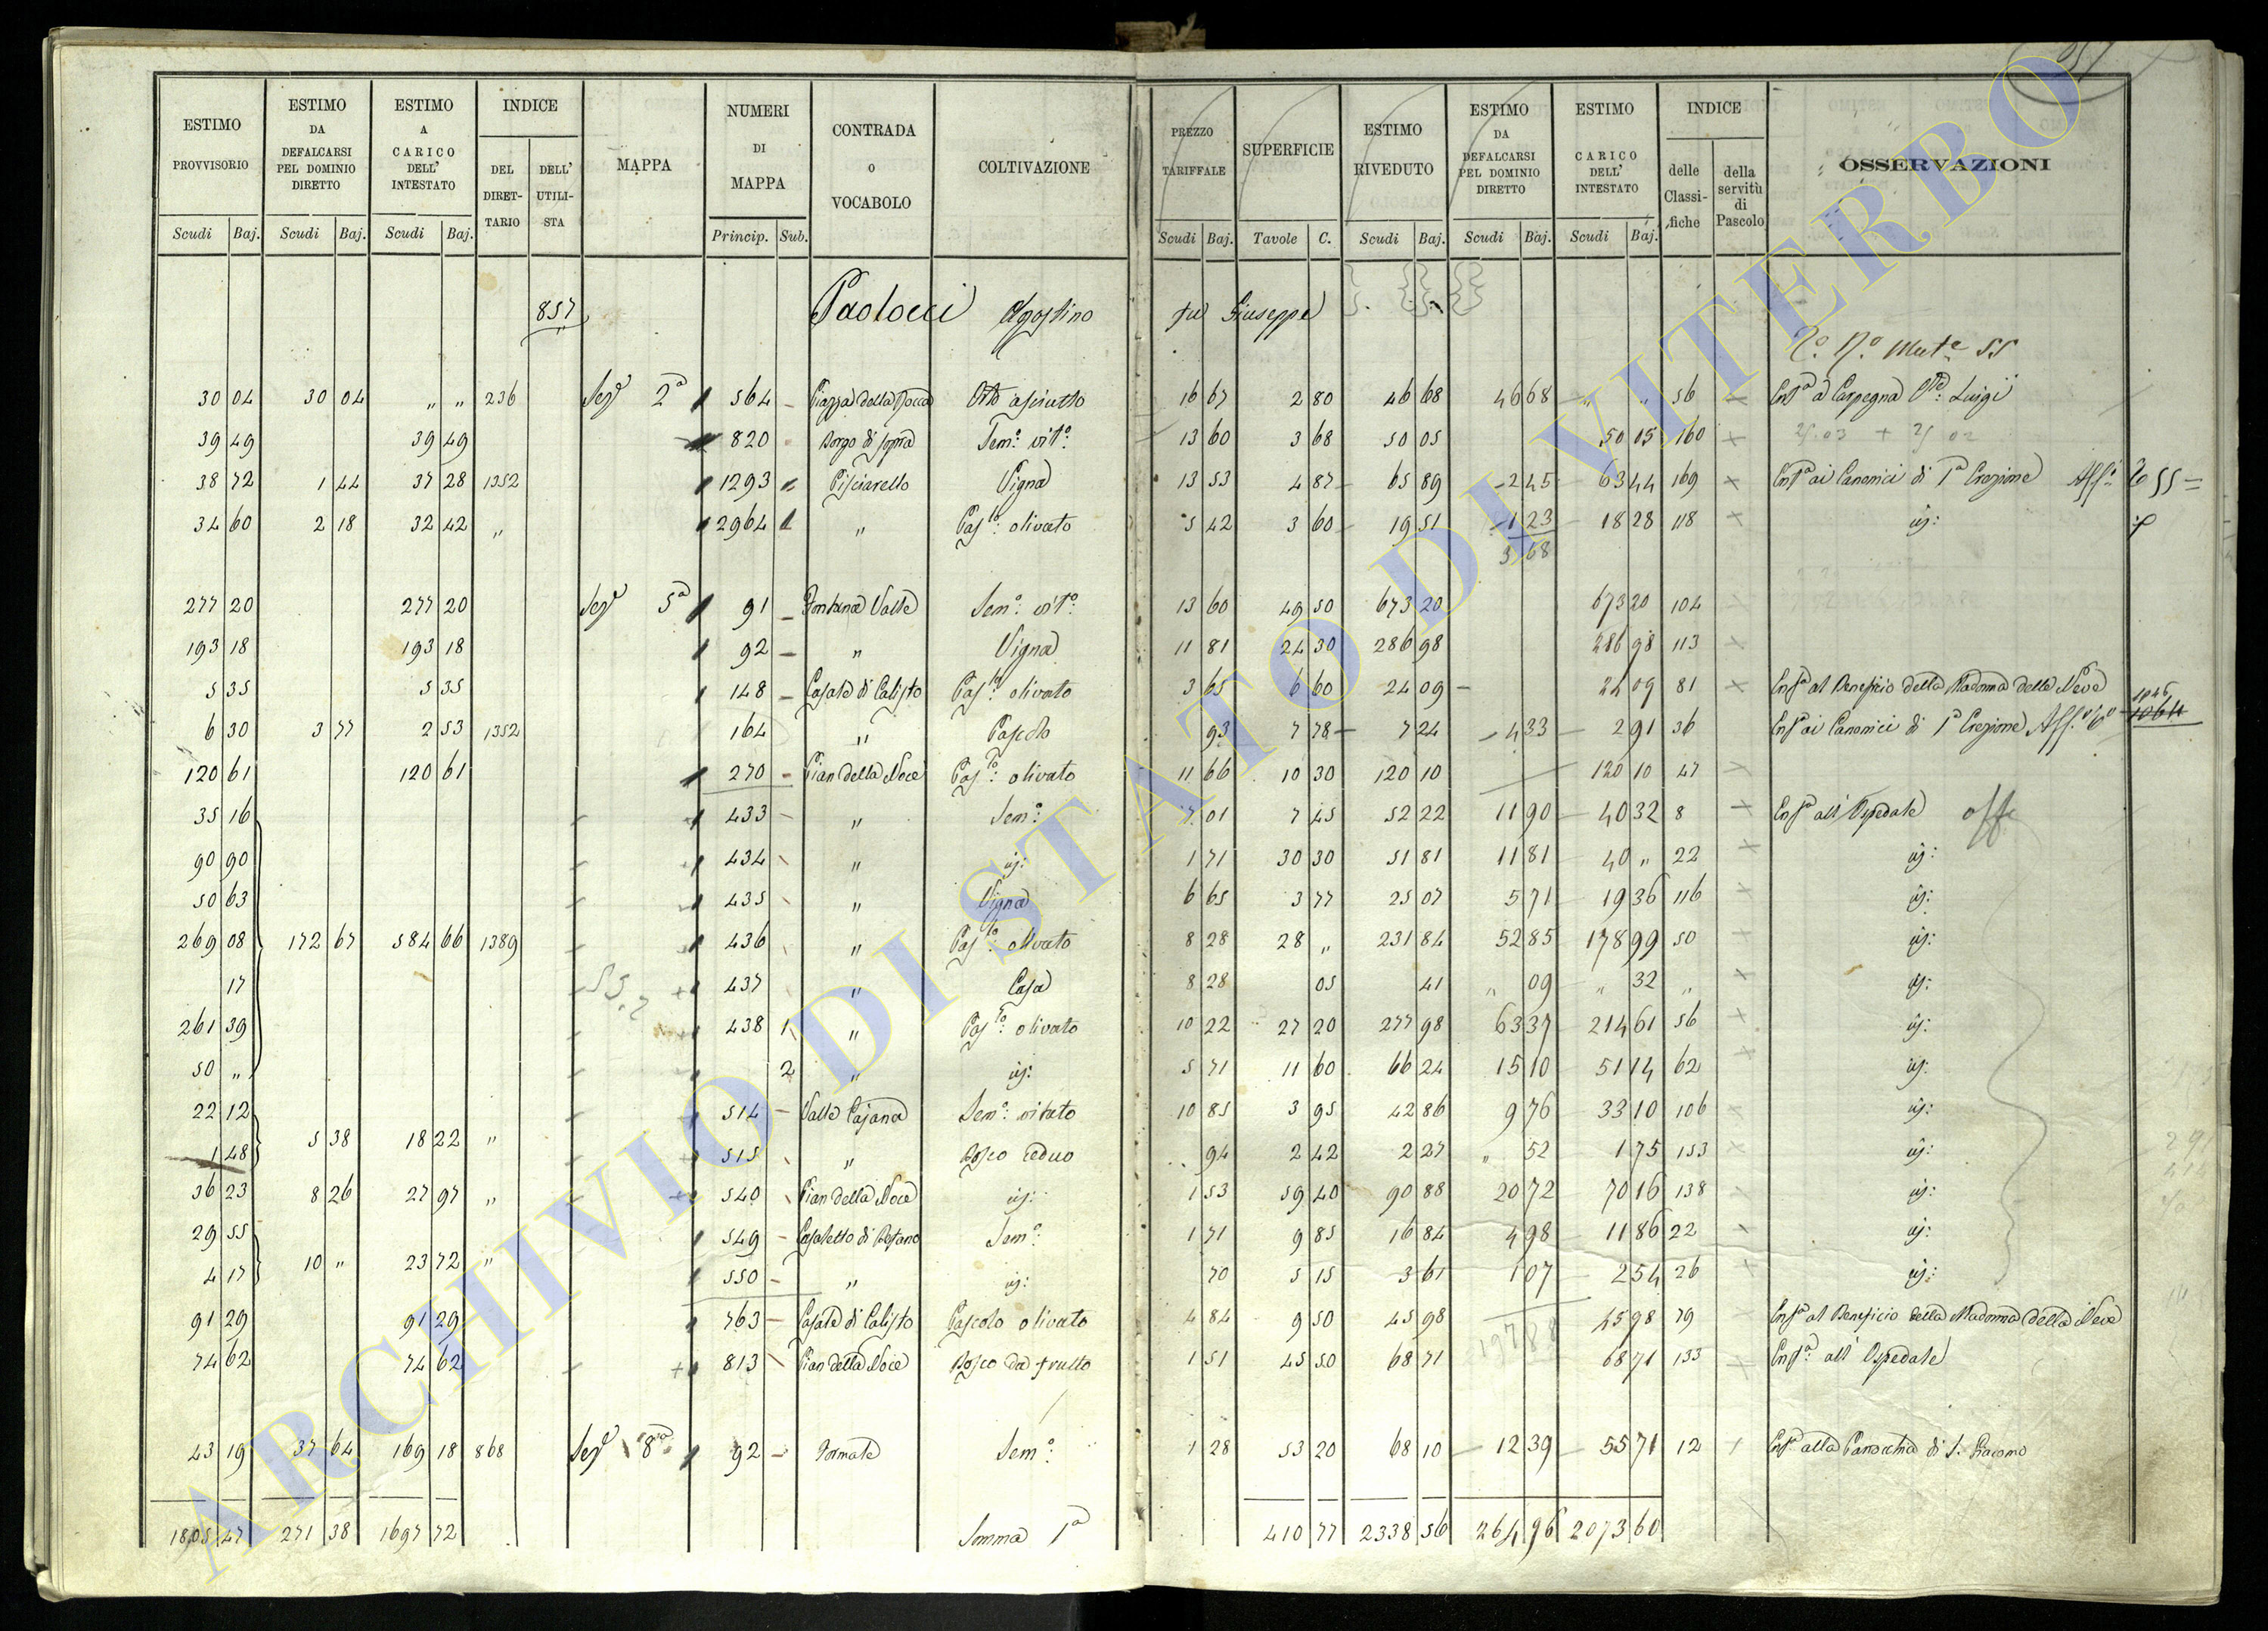 ESTIMO PROVVISORIO | ESTIMO DA DEFALCARSI PEL DOMINIO DIRETTO | ESTIMO A CARICO DELL' INTESTATO | INDICE | MAPPA | NUMERI DI MAPPA | CONTRADA o VOCABOLO | COLTIVAZIONE | PREZZO TARIFFALE | SUPERFICIE | ESTIMO RIVEDUTO | ESTIMO DA DEFALCARSI PEL DOMINIO DIRETTO | ESTIMO A CARICO DELL' INTESTATO | INDICE | OSSERVAZIONI
DEL DIRETTARIO | DELL' UTILISTA | delle Classifiche | della servitù di Pascolo
Scudi Baj. | Scudi Baj. | Scudi Baj. | Princip. Sub. | Scudi Baj. | Tavole C. | Scudi Baj. | Scudi Baj. | Scudi Baj.
857 Paolocci Agostino fu Giuseppe
55
30 04 | 30 04 | " " | 236 | Sez. 2a | 564 | Piazza della Rocca | Orto asciutto | 16 67 | 2 80 | 46 68 | 46 68 | " | 56 | Enfa a Carpegna Cte Luigi
39 49 | 39 49 | 820 | Borgo di sopra | Semo: vito: | 13 60 | 3 68 | 50 05 | 50 05 | 160
38 72 | 1 44 | 37 28 | 1352 | 1293 | Pisciarello | Vigna | 13 53 | 4 87 | 65 89 | 2 45 | 63 44 | 169 | Enfa ai Canonici di 1a Erezione
34 60 | 2 18 | 32 42 | " | 2964 | " | Pasto: olivato | 5 42 | 3 60 | 19 51 | 1 23 | 18 28 | 118 | úg:
3 68
277 20 | 277 20 | Sez. 5a | 91 | Fontana Valle | Semo: vito: | 13 60 | 49 50 | 673 20 | 673 20 | 104
193 18 | 193 18 | 92 | " | Vigna | 11 81 | 24 30 | 286 98 | 286 98 | 113
5 35 | 5 35 | 148 | Casale di Calisto | Pasto: olivato | 3 65 | 6 60 | 24 09 | 24 09 | 81 | Enfa al Beneficio della Madonna della Neve
6 30 | 3 77 | 2 53 | 1352 | 164 | " | Pascolo | 93 | 7 78 | 7 24 | 4 33 | 2 91 | 36 | Enfa ai Canonici di 1a Erezione 1046 1064
120 61 | 120 61 | 270 | Pian della Noce | Pasto: olivato | 11 66 | 10 30 | 120 10 | 120 10 | 47
35 16 | 433 | " | Semo: | 7 01 | 7 45 | 52 22 | 11 90 | 40 32 | 8 | Enfa all' Ospedale
90 90 | 434 | " | úg: | 1 71 | 30 30 | 51 81 | 11 81 | 40 " | 22 | úg:
50 63 | 435 | " | Vigna | 6 65 | 3 77 | 25 07 | 5 71 | 19 36 | 116 | úg:
269 08 | 172 67 | 584 66 | 1389 | 436 | " | Pasto: olivato | 8 28 | 28 " | 231 84 | 52 85 | 178 99 | 50 | úg:
17 | 437 | " | Casa | 8 28 | 05 | 41 | " 09 | " 32 | " | úg:
261 39 | 438 1 | " | Pasto: olivato | 10 22 | 27 20 | 277 98 | 63 37 | 214 61 | 56 | úg:
50 " | 2 | " | úg: | 5 71 | 11 60 | 66 24 | 15 10 | 51 14 | 62 | úg:
22 12 | 514 | Valle Cajana | Semo: vitato | 10 85 | 3 95 | 42 86 | 9 76 | 33 10 | 106 | úg:
5 38 | 18 22 | "
1 48 | 515 | " | Bosco ceduo | 94 | 2 42 | 2 27 | " 52 | 1 75 | 153 | úg:
36 23 | 8 26 | 27 97 | " | 540 | Pian della Noce | úg: | 1 53 | 59 40 | 90 88 | 20 72 | 70 16 | 138 | úg:
29 55 | 549 | Casaletto di | Semo: | 1 71 | 9 85 | 16 84 | 4 98 | 11 86 | 22 | úg:
10 " | 23 72 | "
4 17 | 550 | " | úg: | 70 | 5 15 | 3 61 | 1 07 | 2 54 | 26 | úg:
91 29 | 91 29 | 763 | Casale di Calisto | Pascolo olivato | 4 84 | 9 50 | 45 98 | 45 98 | 79 | Enfa al Beneficio della Madonna della Neve
74 62 | 74 62 | 813 | Pian della Noce | Bosco da frutto | 1 51 | 45 50 | 68 71 | 68 71 | 133 | Enfa: all' Ospedale
43 19 | 37 64 | 169 18 | 868 | Sez. 8a | 92 | Formale | Semo: | 1 28 | 53 20 | 68 10 | 12 39 | 55 71 | 12 | Enfa alla Parocchia di S. Giacomo
1805 47 | 271 38 | 1697 72 | Somma 1a | 410 77 | 2338 56 | 264 96 | 2073 60
ARCHIVIO DI STATO DI VITERBO